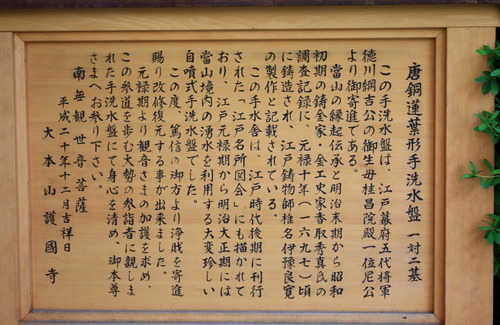 唐銅蓮葉形手洗水盤 一対二基
この手洗水盤は、江戸幕府五代将軍
徳川綱吉公の御生母桂昌院殿一位尼公
より御寄進である。
當山の縁起伝承と明治末期から昭和
初期の鋳金家・金工史家香取秀真氏の
調査記録に、元禄十年(一六九七)頃
に鋳造され、江戸鋳物師椎名伊豫良寛
の製作と記載されている。
この手水舎は、江戸時代後期に刊行
された「江戸名所図会」にも描かれて
おり、江戸元禄期から明治大正期には
當山境内の湧水を利用する大変珍しい
自噴式手洗水盤でした。
この度、篤信の御方より浄財を寄進
賜り改修復元する事が出来ました。
元禄期より観音さまの加護を求め、
この参道を歩む大勢の参詣者に親しま
れた手洗水盤にて身心を清め、御本尊
さまへお参り下さい。
南無観世音菩薩
平成二十年十二月吉祥日
大本山護國寺